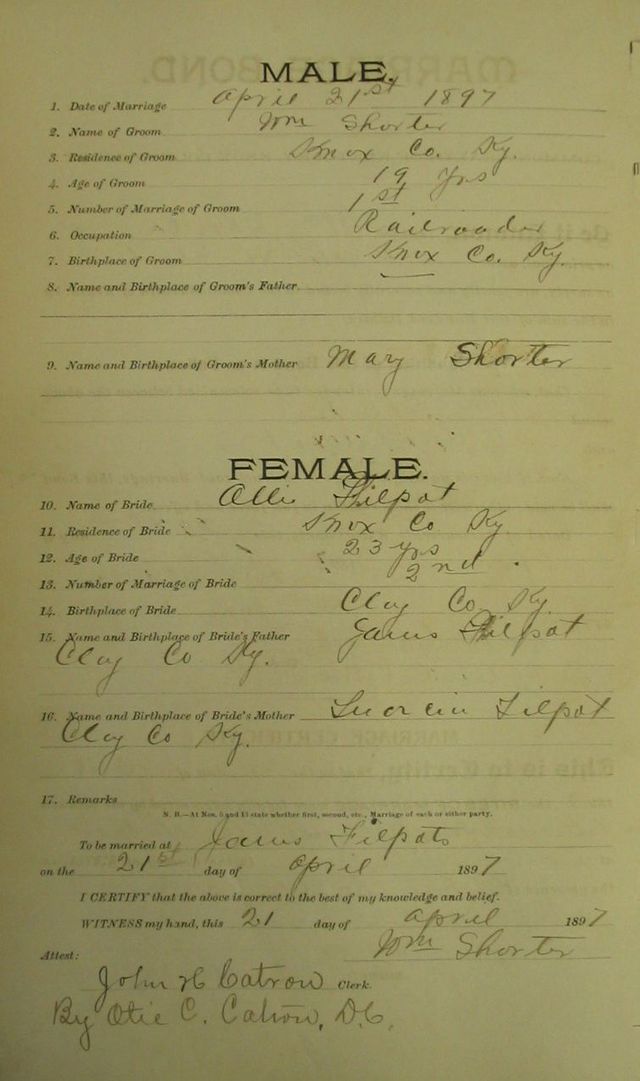 MALE.
1. Date of Marriage April 21st 1897
2. Name of Groom Wm Shorter
3. Residence of Groom Knox Co. Ky.
4. Age of Groom 19 yrs
5. Number of Marriage of Groom 1st
6. Occupation Railroader
7. Birthplace of Groom Knox Co. Ky.
8. Name and Birthplace of Groom's Father
9. Name and Birthplace of Groom's Mother Mary Shorter
FEMALE.
10. Name of Bride Ollie Filpot
11. Residence of Bride Knox Co Ky
12. Age of Bride 23 yrs
13. Number of Marriage of Bride 2nd
14. Birthplace of Bride Clay Co Ky.
15. Name and Birthplace of Bride's Father James Filpot
Clay Co Ky.
16. Name and Birthplace of Bride's Mother Filpot
Clay Co Ky.
17. Remarks
N. B.—At Nos. 5 and 13 state whether first, second, etc., Marriage of each or either party.
To be married at James Filpots
on the 21st day of April 1897
I CERTIFY that the above is correct to the best of my knowledge and belief.
WITNESS my hand, this 21 day of April 1897
Wm Shorter
Attest:
John H Catron Clerk.
By Otie C. Catron, D.C.